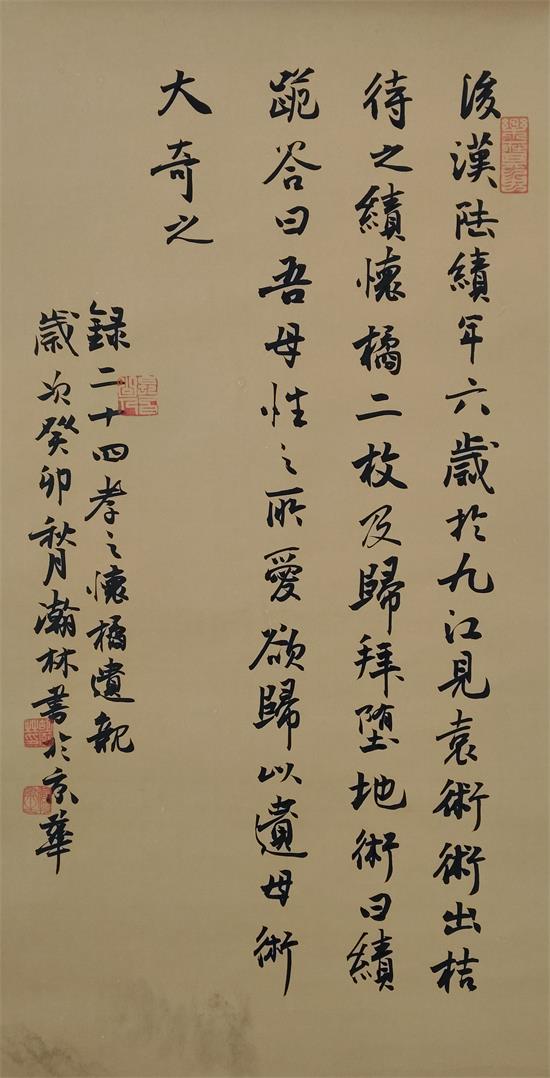 後漢陸績年六歲於九江見袁術術出桔
待之績懷橘二枚及歸拜堕地術曰績
跪答曰吾母性之所愛欲歸以遺母術
大奇之
録二十四孝之懷橘遺親
歲次癸卯秋月瀚林書於京華